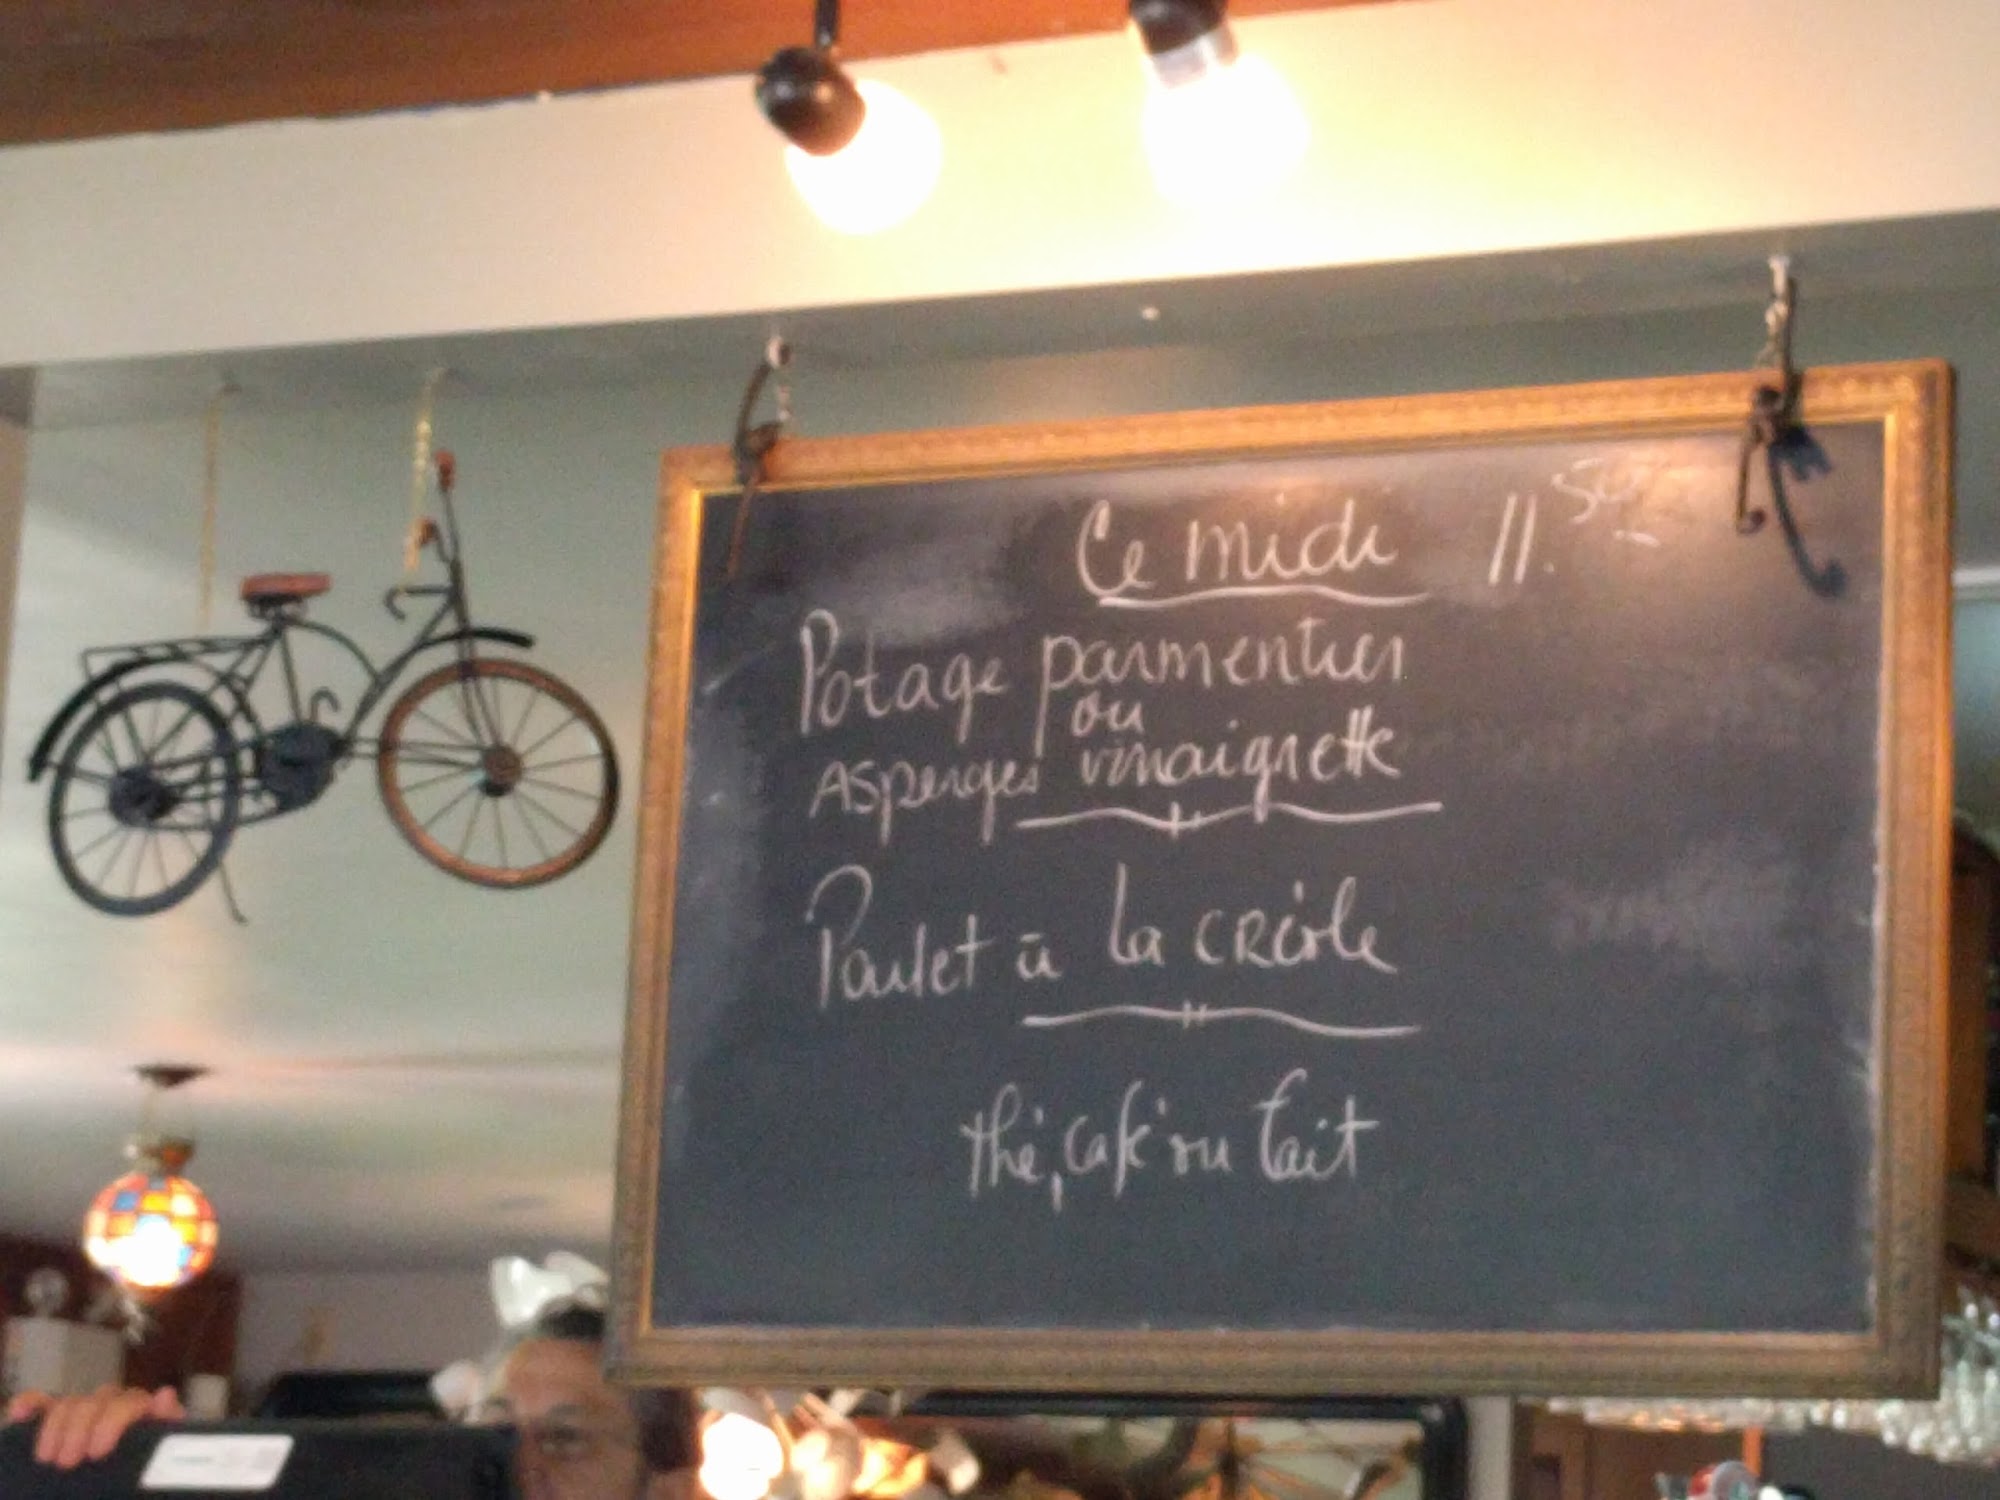 Ce midi 11.50
Potage parmentier
ou
Asperges vinaigrette
Poulet à la créole
thé, café ou lait